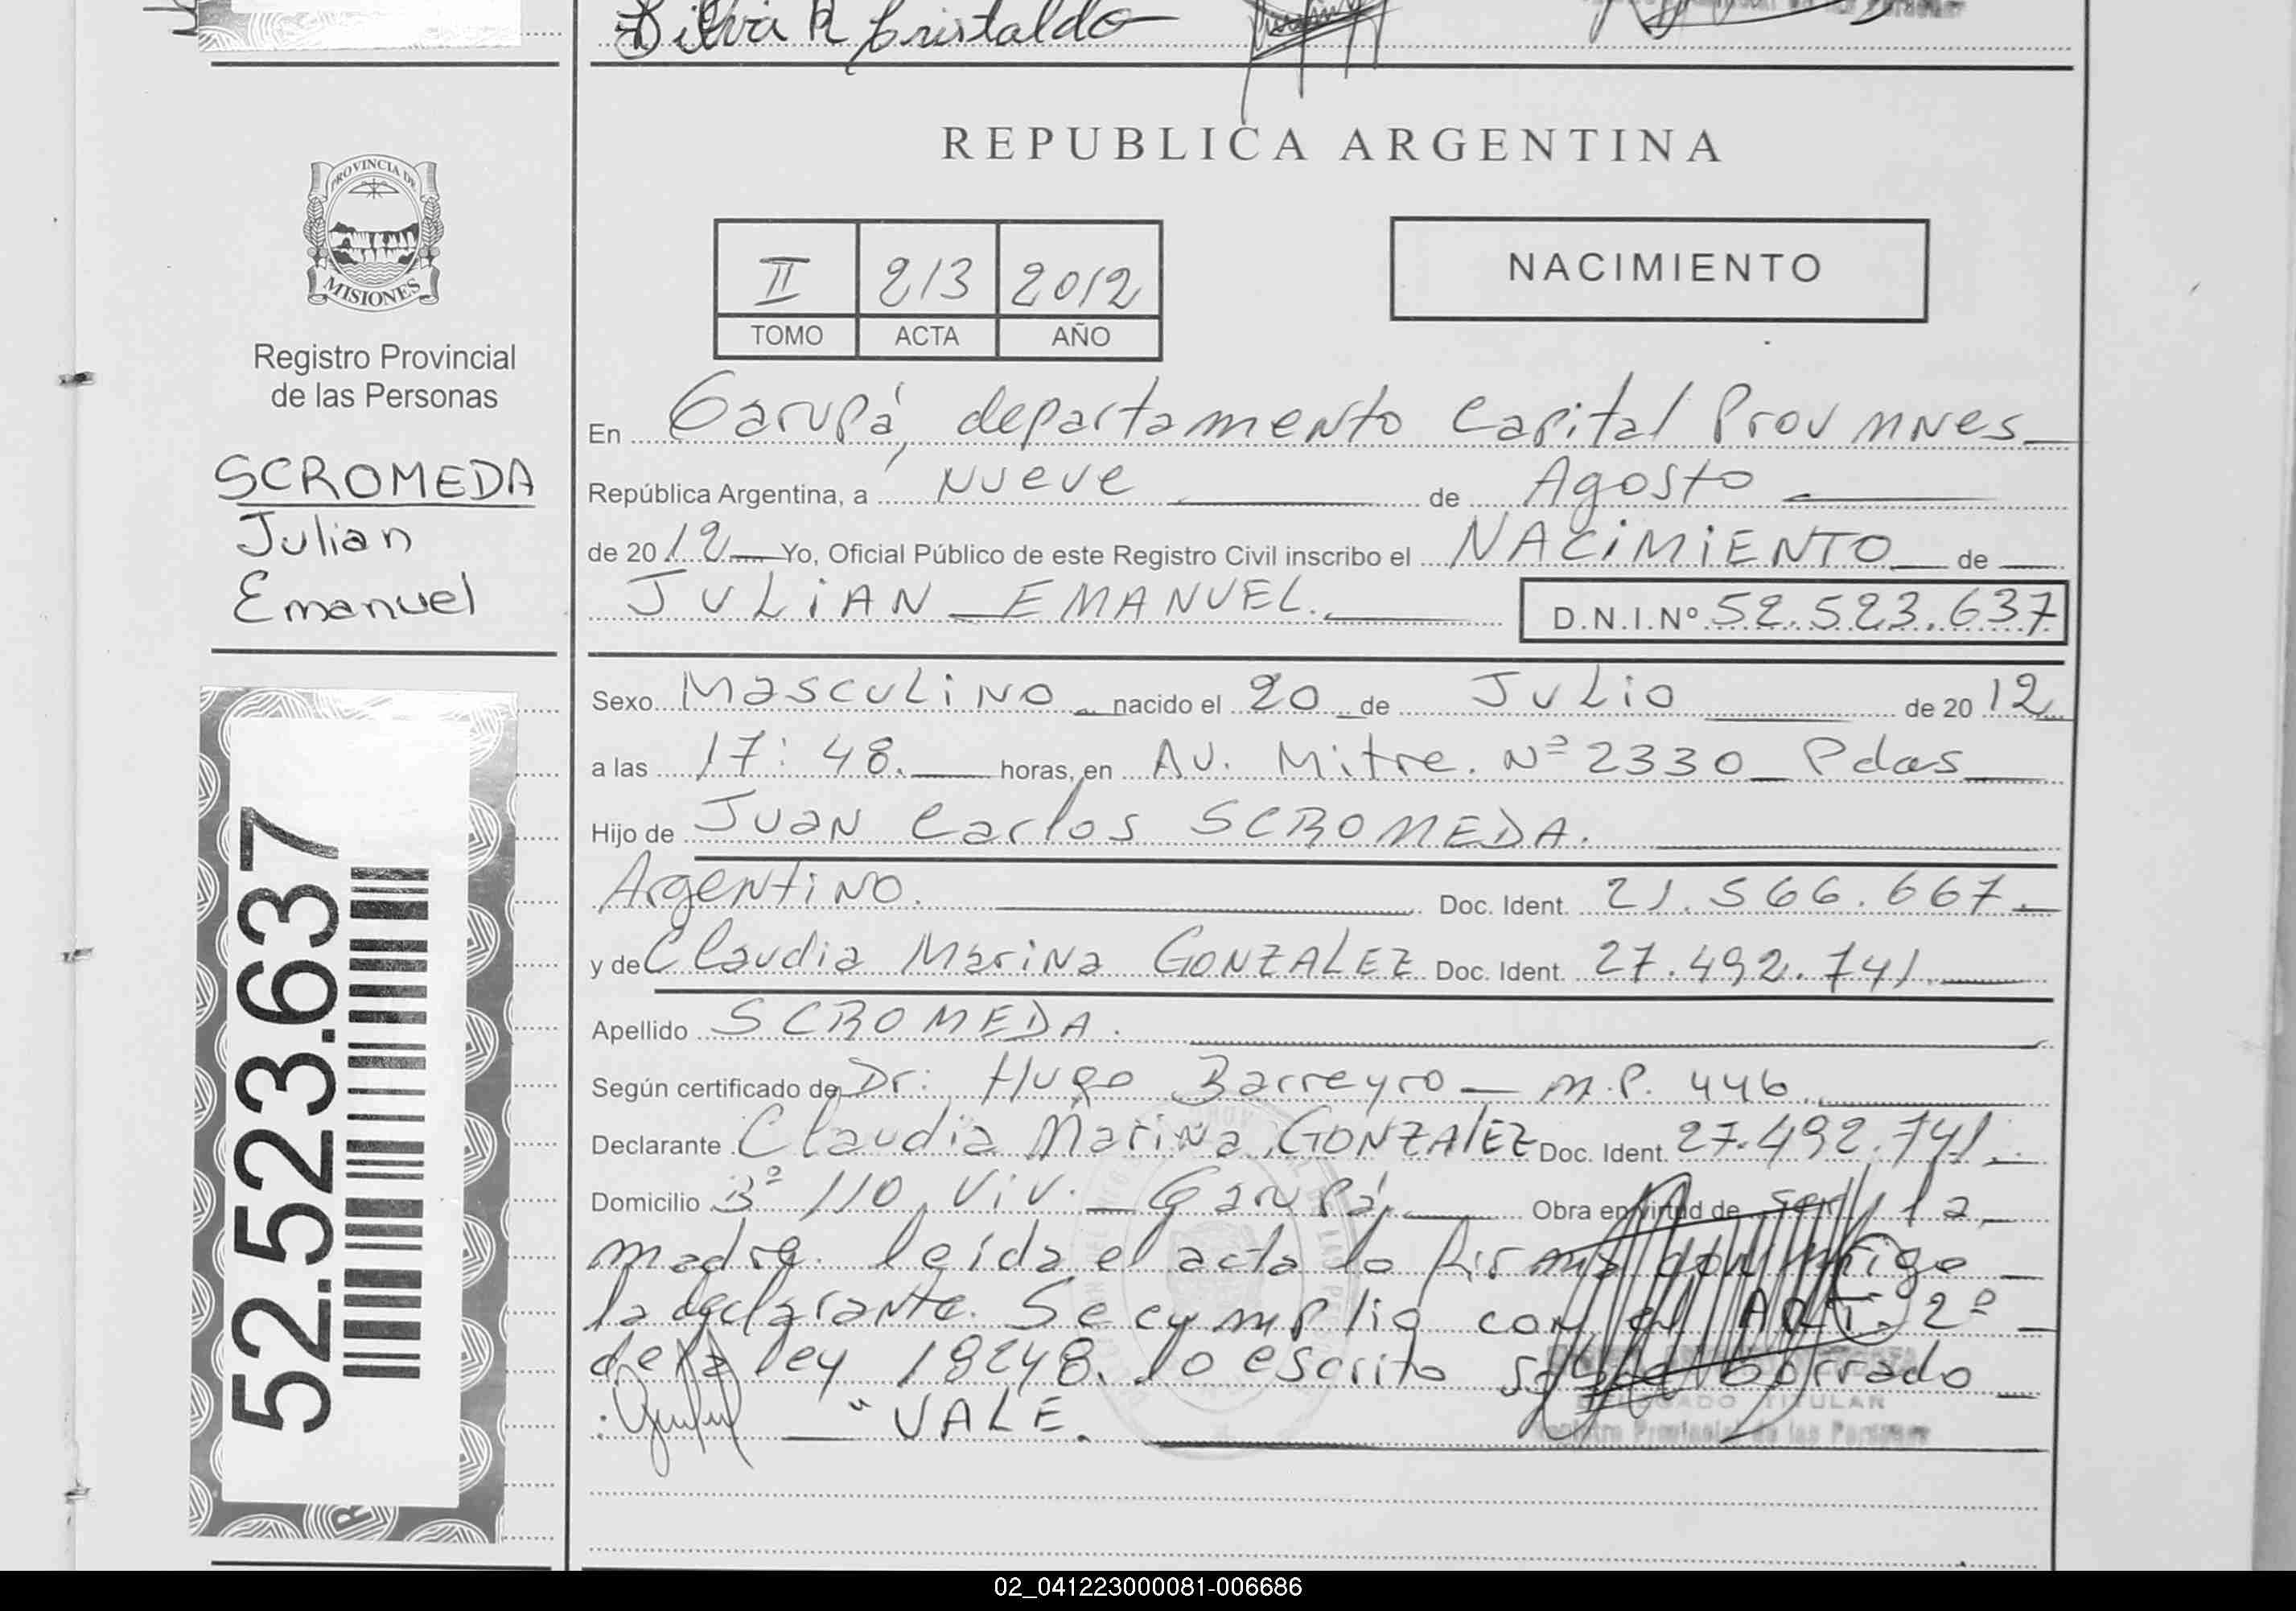 Silvia R Cristaldo
REPUBLICA ARGENTINA
PROVINCIA DE
MISIONES
Registro Provincial
de las Personas
SCROMEDA
Julian
Emanuel
52.523.637
II 213 2012
TOMO ACTA AÑO
NACIMIENTO
En Garupá, departamento Capital Prov Mnes
República Argentina, a Nueve de Agosto
de 2012 Yo, Oficial Público de este Registro Civil inscribo el NACIMIENTO de
JULIAN EMANUEL.
D.N.I.Nº 52.523.637
Sexo Masculino nacido el 20 de Julio de 2012
a las 17:48. horas, en Av. Mitre. Nº 2330 Pdas
Hijo de Juan Carlos SCROMEDA.
Argentino. Doc. Ident. 21.566.667.
y de Claudia Marina GONZALEZ Doc. Ident. 27.492.741
Apellido SCROMEDA.
Según certificado de Dr: Hugo Barreyro — M.P. 446.
Declarante Claudia Marina GONZALEZ Doc. Ident. 27.492.741.
Domicilio Bº 110 Viv. Garupá, Obra en virtud de ser la
madre. leída el acta la firma conmigo
la declarante. Se cumplio con el ART. 2º
de la ley 18248. lo escrito sobre borrado
" VALE.
TITULAR
Registro Provincial de las Personas
02_041223000081-006686